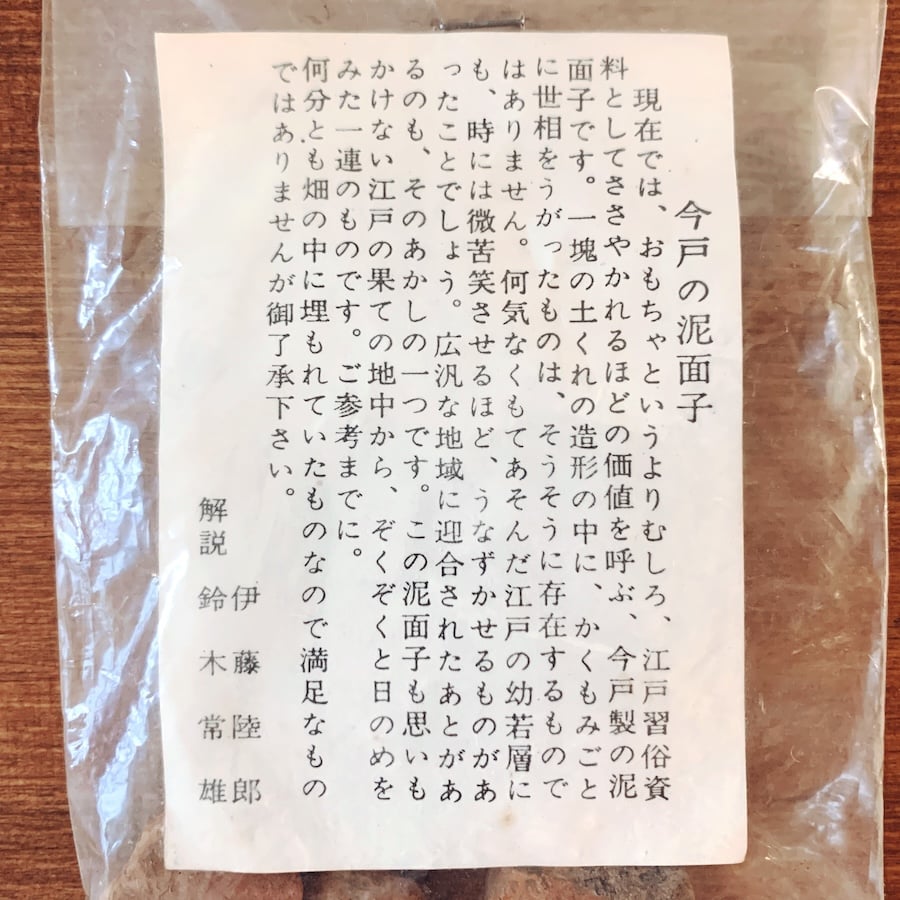 今戸の泥面子
現在では、おもちゃというよりむしろ、江戸習俗資
料としてささやかれるほどの価値を呼ぶ、今戸製の泥
面子です。一塊の土くれの造形の中に、かくもみごと
に世相をうがったものは、そうそうに存在するもので
はありません。何気なくもてあそんだ江戸の幼若層に
も、時には微苦笑させるほど、うなずかせるものがあ
ったことでしょう。広汎な地域に迎合されたあとがあ
るのも、そのあかしの一つです。この泥面子も思いも
かけない江戸の果ての地中から、ぞくぞくと日のめを
みた一連のものです。ご参考までに。
何分とも畑の中に埋もれていたものなので満足なもの
ではありませんが御了承下さい。
伊藤陸郎
解説 鈴木常雄